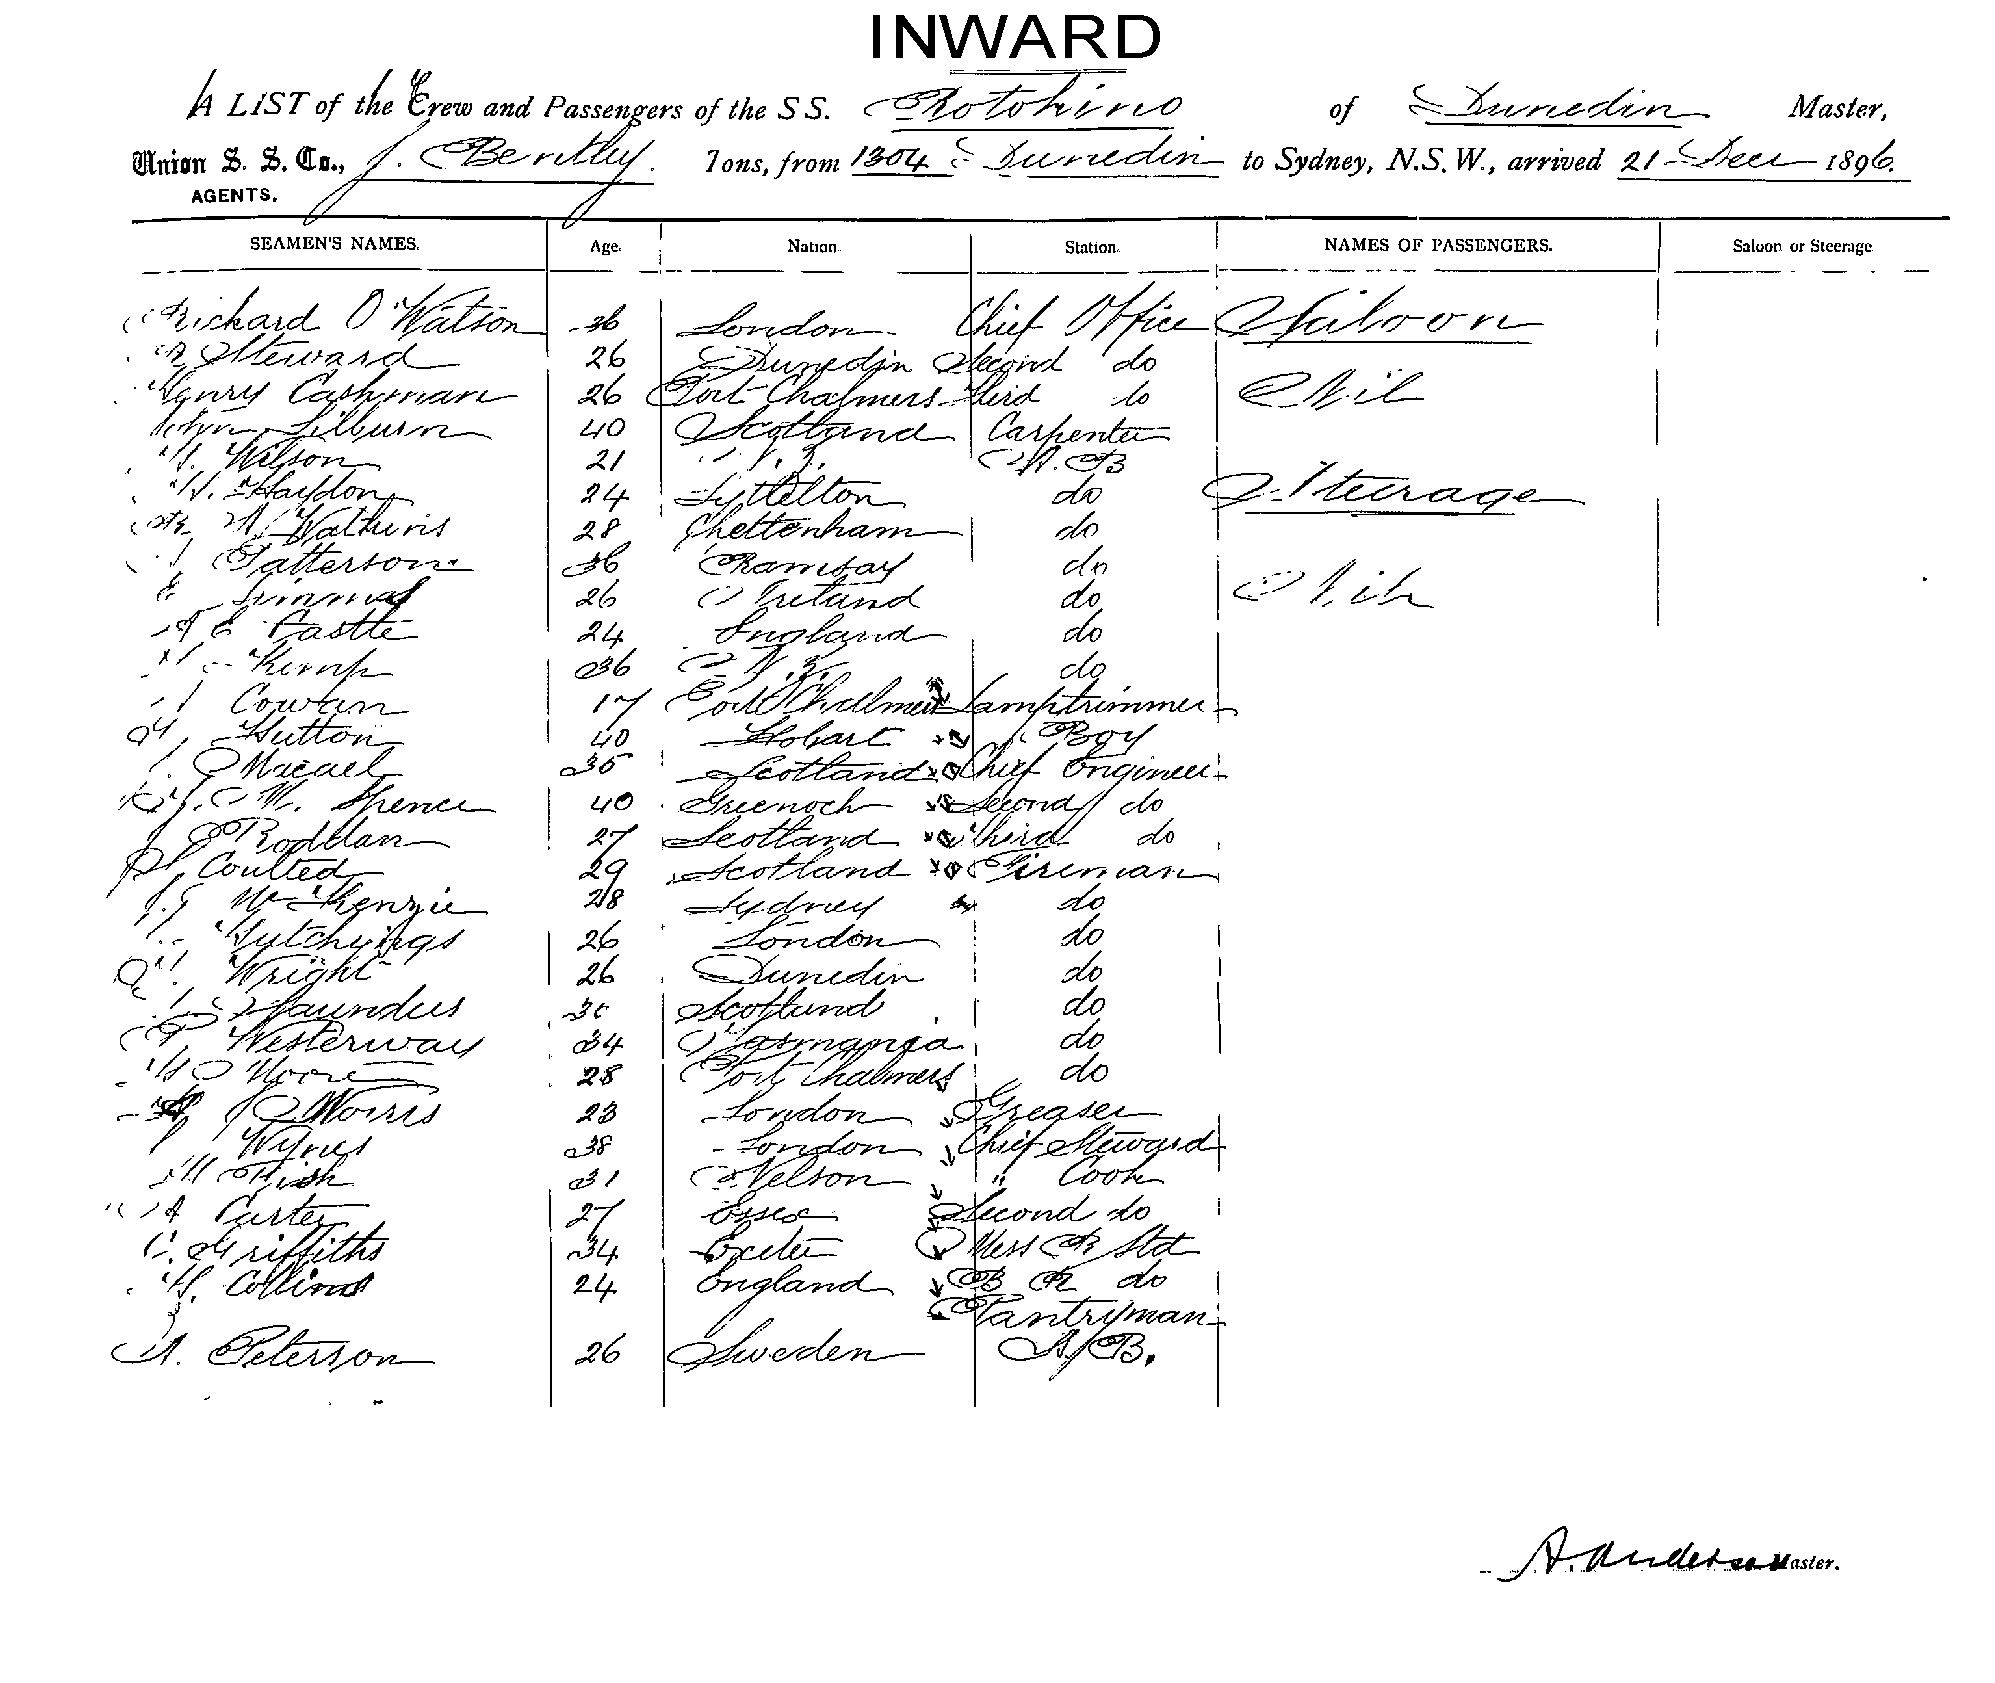 INWARD
A LIST of the Crew and Passengers of the SS. Rotokino of Dunedin Master,
Union S. S. Co., J. Bentley. Tons, from 1304 Dunedin to Sydney, N.S.W., arrived 21 Dec 1896.
AGENTS.
SEAMEN'S NAMES. Age. Nation. Station. NAMES OF PASSENGERS. Saloon or Steerage
Richard O Watson 36 London Chief Office Saloon
Steward 26 Dunedin Second do
Henry Cashman 26 Port Chalmers Third do Nil
John Lilburn 40 Scotland Carpenter
Wilson 21 N.Z. A.B
Haydon 24 Lyttelton do Steerage
Watkins 28 Cheltenham do
Patterson 36 Ramsay do Nil
26 Ireland do
A E Castle 24 England do
Kemp 36 N.Z. do
Cowan 17 Port Chalmers Lamptrimmer
Hutton 40 Hobart Boy
35 Scotland Chief Engineer
W. Spence 40 Greenock Second do
Roddan 27 Scotland Third do
29 Scotland Fireman
J.G McKenzie 28 Sydney do
Hutchings 26 London do
Wright 26 Dunedin do
Saunders Scotland do
Westerway 34 Tasmania do
Moore 28 Port Chalmers do
Morris 23 London Greaser
Wynes 38 London Chief Steward
Fish 31 Nelson " Cook
A Carter 27 Essex Second do
C. Griffiths 34 Exeter Mess R Std
H. Collins 24 England B R do
Pantryman
A. Peterson 26 Sweden A.B.
A. Anderson Master.